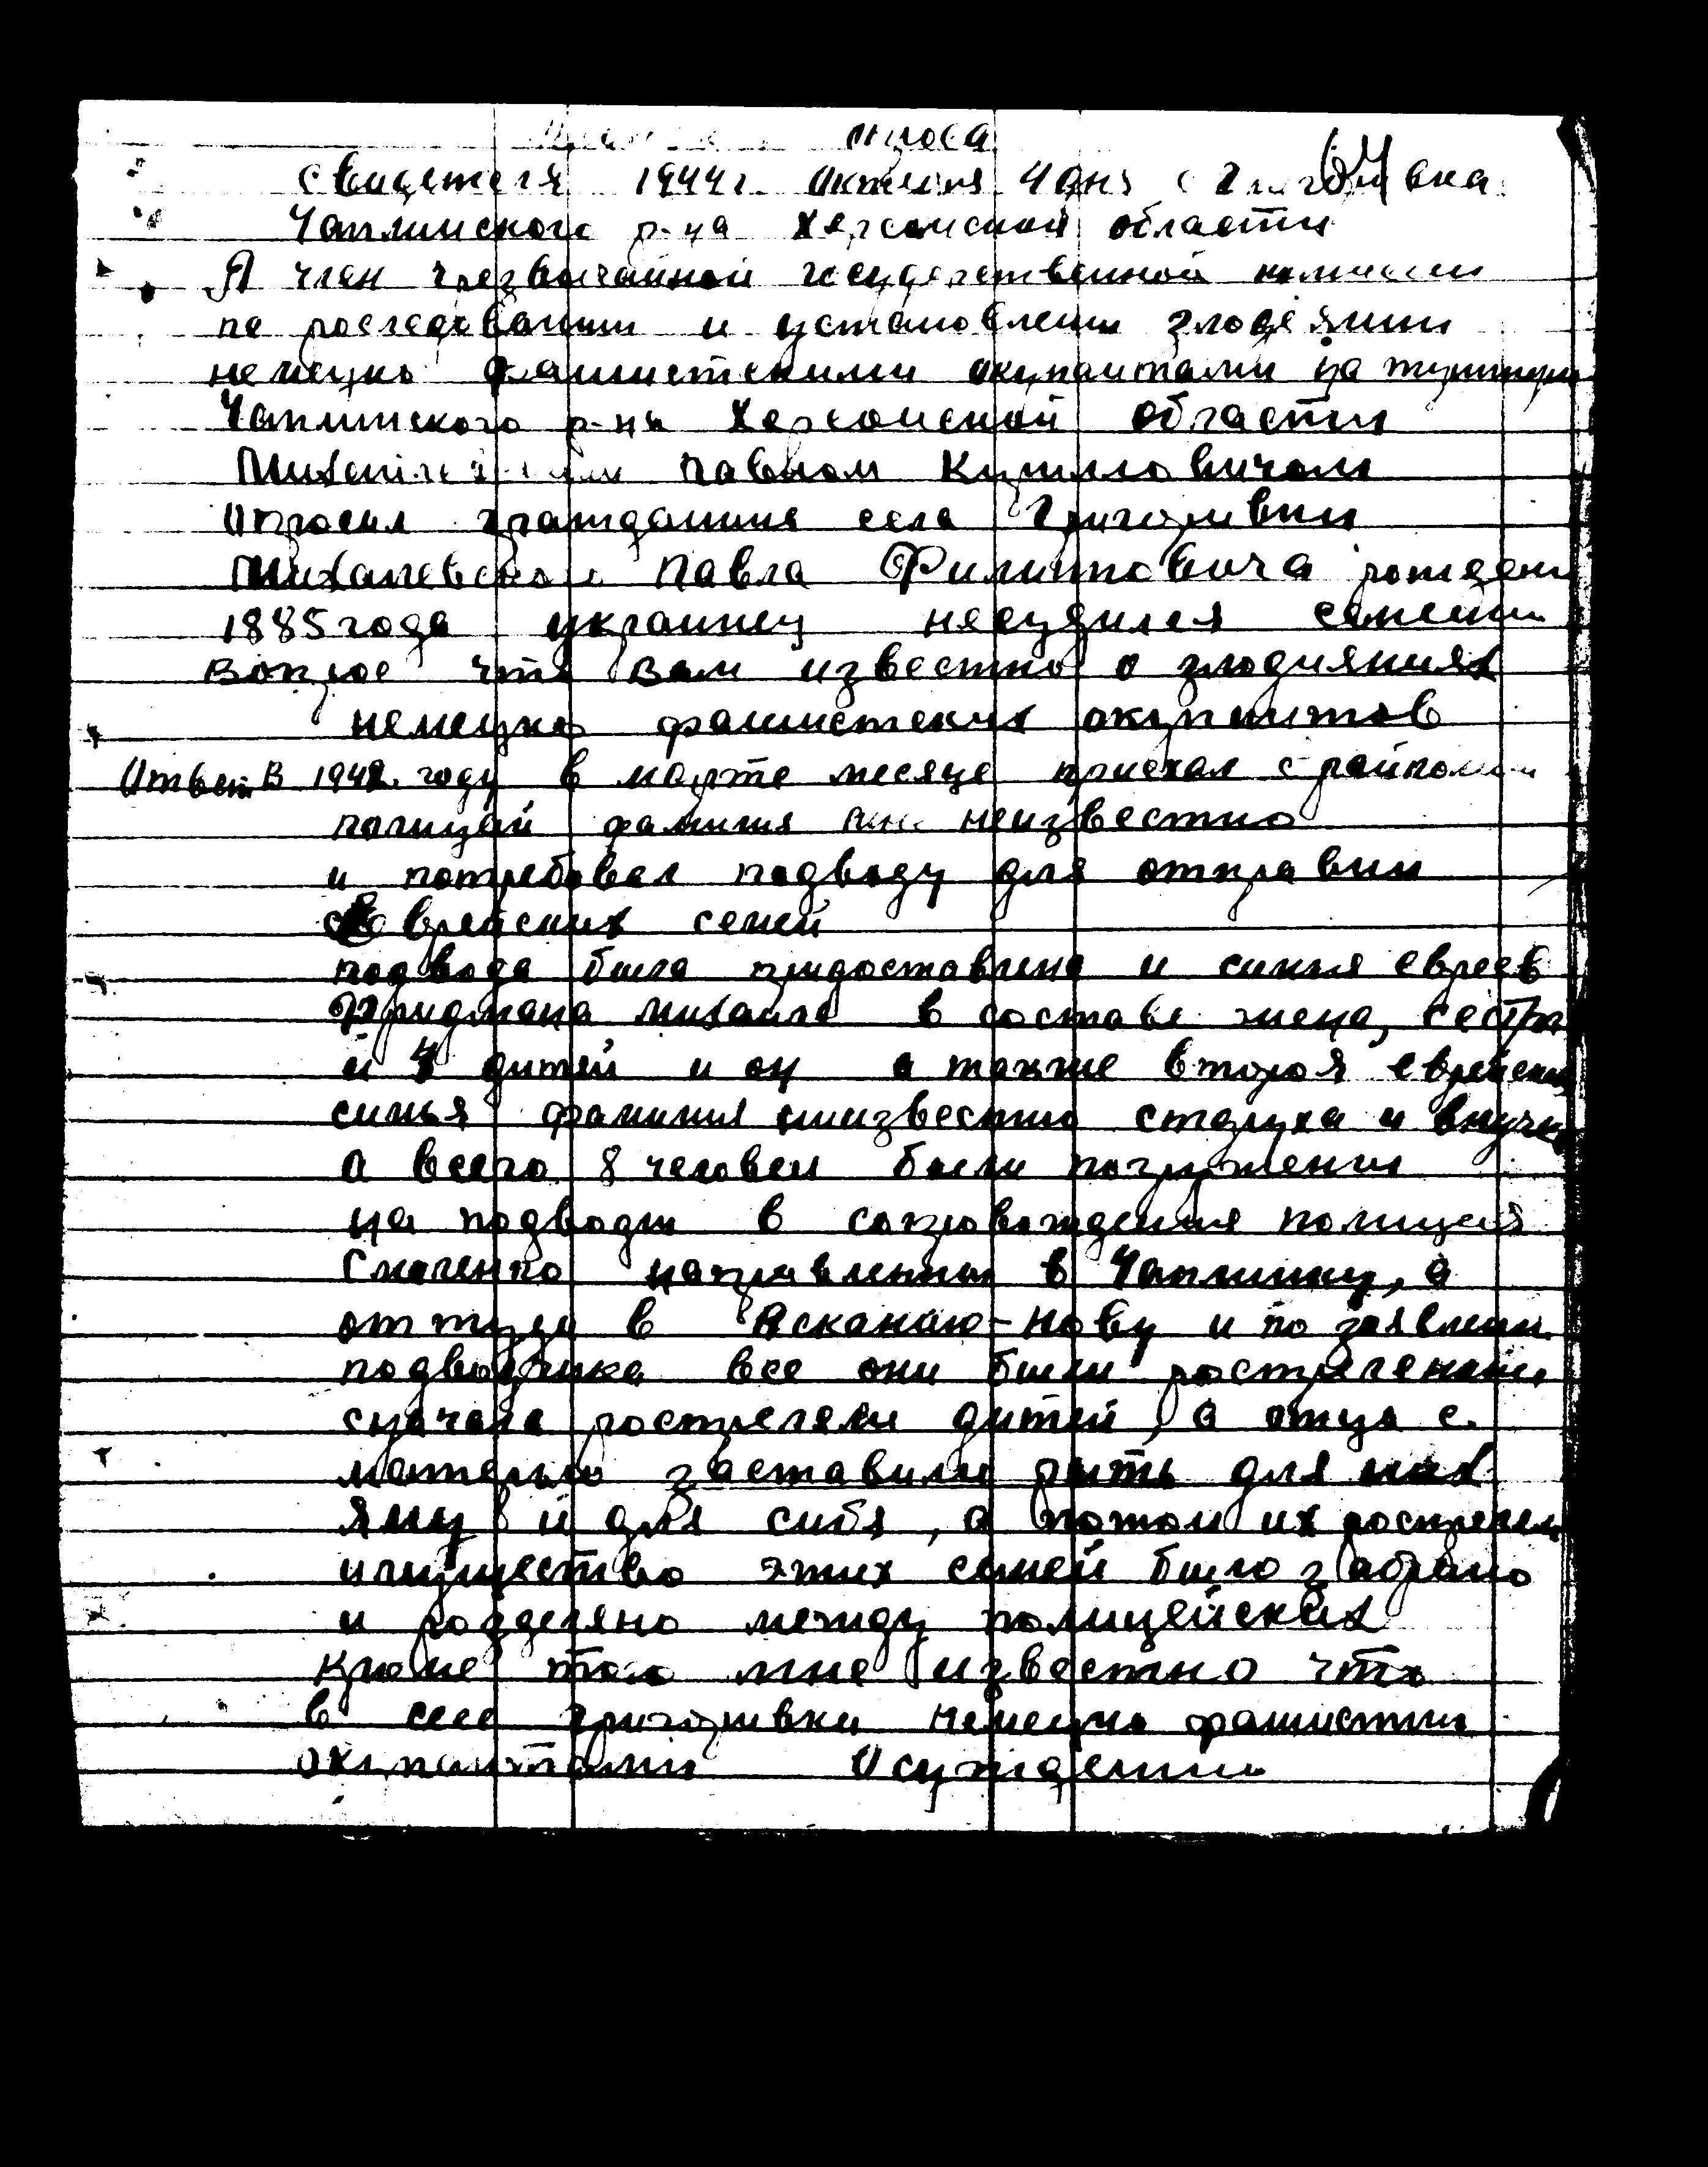 опроса
свидетеля 1944г. Октября 4 дня с
64
Чаплинского р-на Херсонской области
Я член чрезвычайной государственной комиссии
по росследовании и установлении злодеянии
немецко фашистскими окупантами на
Чаплинского р-на Херсонской области
Павлом Кирилловичом
Опросил гражданина села Григоривки
Михалевского Павла Филиповича рождени
1885 года украинец несудился
Вопрос что Вам известно о злодияниях
немецко фашистских окупантов
Ответ В 1942 году в марте месяце приехал с
полицай фамилия неизвестно
и потребовал подводу для отправки
еврейских семей
подвода была придоставлена и симья евреев
Фридмана михаила в составе жена, сестра
и 4 дитей и он а также вторая
симья фамилия ниизвестно старуха и внучка
а всего 8 человек были погружении
на подводы в сопровождения полицая
направленны в Чаплинку, а
оттуда в Асканию-Нову и по заявлени
подводчика все они были
сначала рострелели дитей, а отца с
матерью заставили рыть для них
яму и для сибя, а потом их
имущество этих семей было забрано
и розделено между полицейских
Кроме того мне известно что
в селе григоривки немецко фашистки
окупантами Осужденни